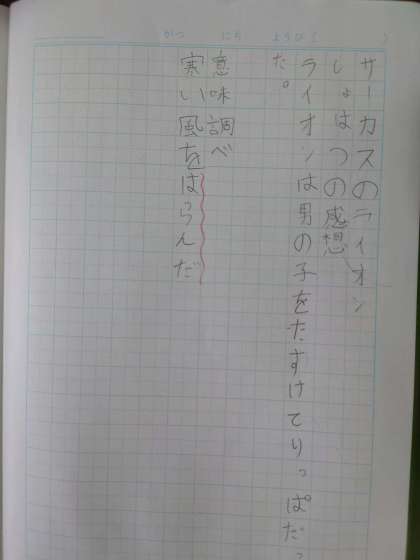 がつ にち ようび( )
サーカスのライオン
しょはつの感想
ライオンは男の子をたすけてりっぱだっ
た。
意味調べ
寒い風をはらんだ